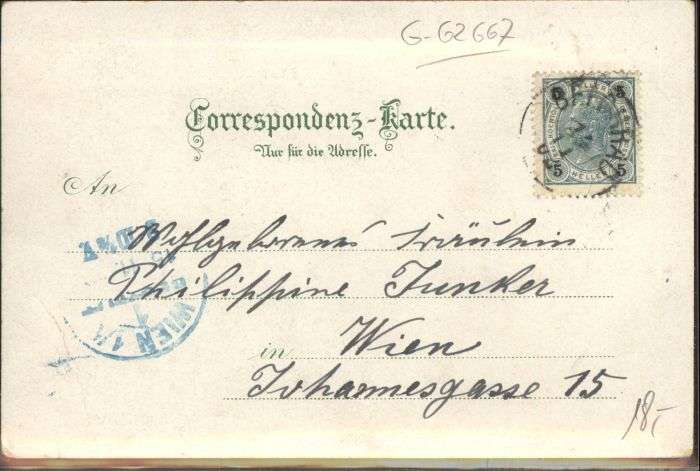 G-62667
Correspondenz-Karte.
Nur für die Adresse.
5 5
HELLER
5 5
An
Wohlgeborenes Fräulein
Philippine Junker
in Wien
Johannesgasse 15
WIEN 1/1
18,-